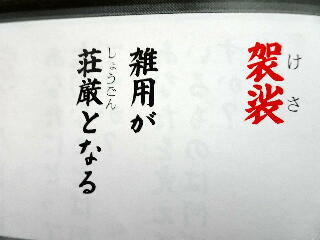 袈裟
けさ
雑用が
荘厳となる
しょうごん